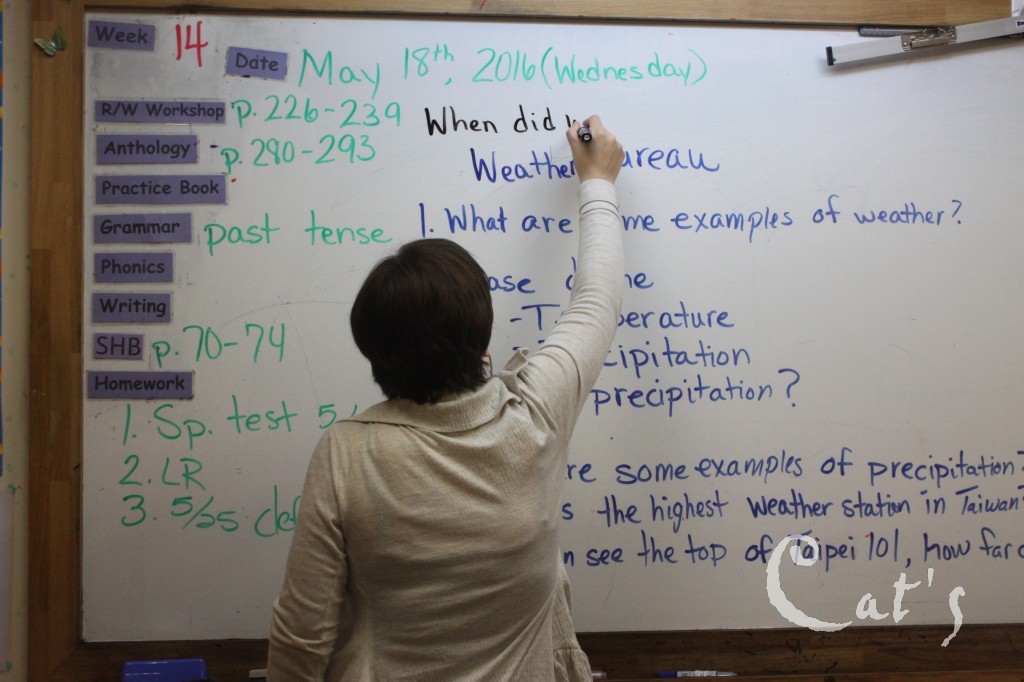 Week 14
Date May 18th, 2016 (Wednesday)
R/W Workshop p. 226-239
Anthology p. 280-293
Practice Book
Grammar past tense
Phonics
Writing
SHB p. 70-74
Homework
1. Sp. test 5/
2. LR
3. 5/25 def
When did
Weather ureau
1. What are me examples of weather?
ase d ne
- T perature
cipitation
precipitation?
re some examples of precipitation?
s the highest weather station in Taiwan?
n see the top of Taipei 101, how far
Cat's